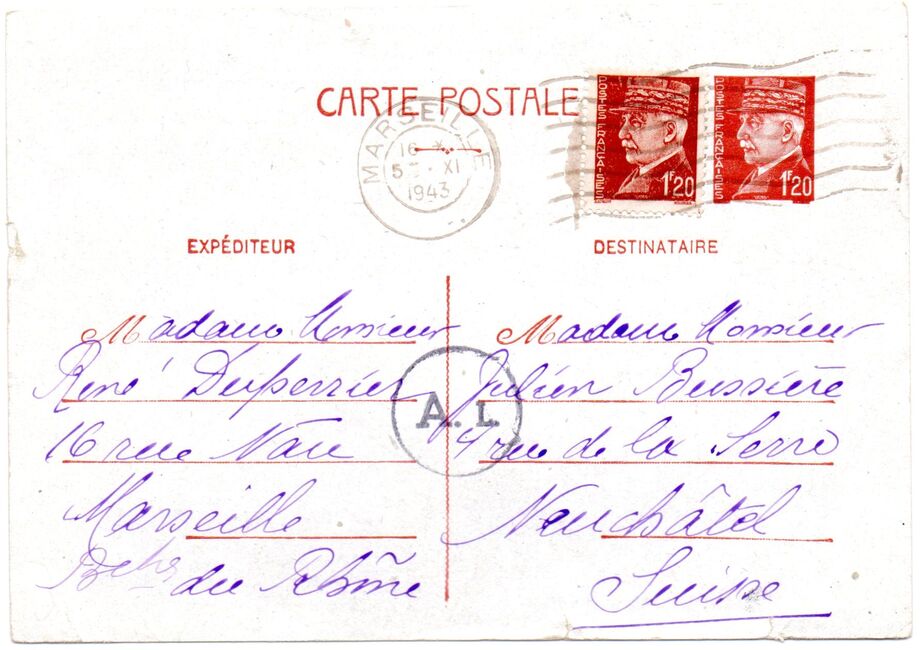 CARTE POSTALE
MARSEILLE
16 *
5 - XI
1943
POSTES FRANÇAISES
1F20
POSTES FRANÇAISES
1F20
EXPÉDITEUR
Madame Monsieur
René Duperrier
16 rue Nau
Marseille
Bches du Rhône
A. I.
DESTINATAIRE
Madame Monsieur
Julien Bussière
4 rue de la Serre
Neuchâtel
Suisse